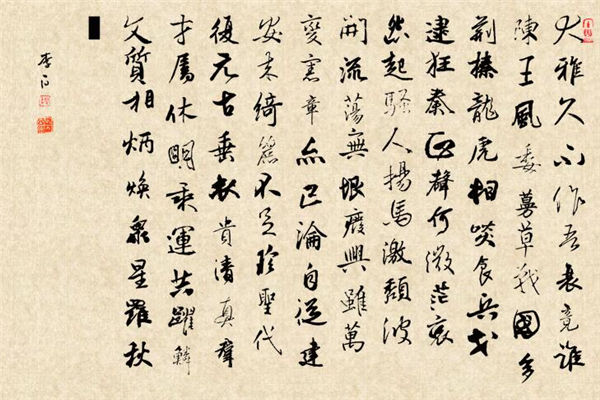 大雅久不作吾衰竟誰
陳王風委蔓草戰國多
荆榛龍虎相啖食兵戈
逮狂秦正聲何微茫哀
怨起騷人揚馬激頹波
開流蕩無垠廢興雖萬
變憲章亦已淪自從建
安来綺麗不足珍聖代
復元古垂衣貴清真羣
才属休明乘運共躍鱗
文質相炳煥衆星羅秋
李白